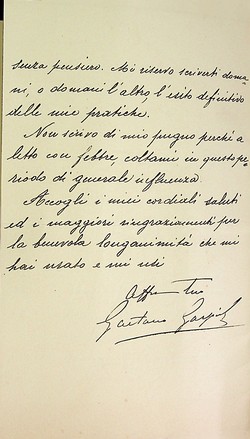 senza pensiero. Mi riservo scriverti doma-
ni, o domani l'altro, l'esito definitivo
delle mie pratiche.
Non scrivo di mio pugno perché a
letto con febbre, coltami in questo pe-
riodo di generale influenza.
Accogli i miei cordiali saluti
ed i maggiori ringraziamenti per
la benevola longanimità che mi
hai usato e mi usi
Aff Tuo
Gaetano